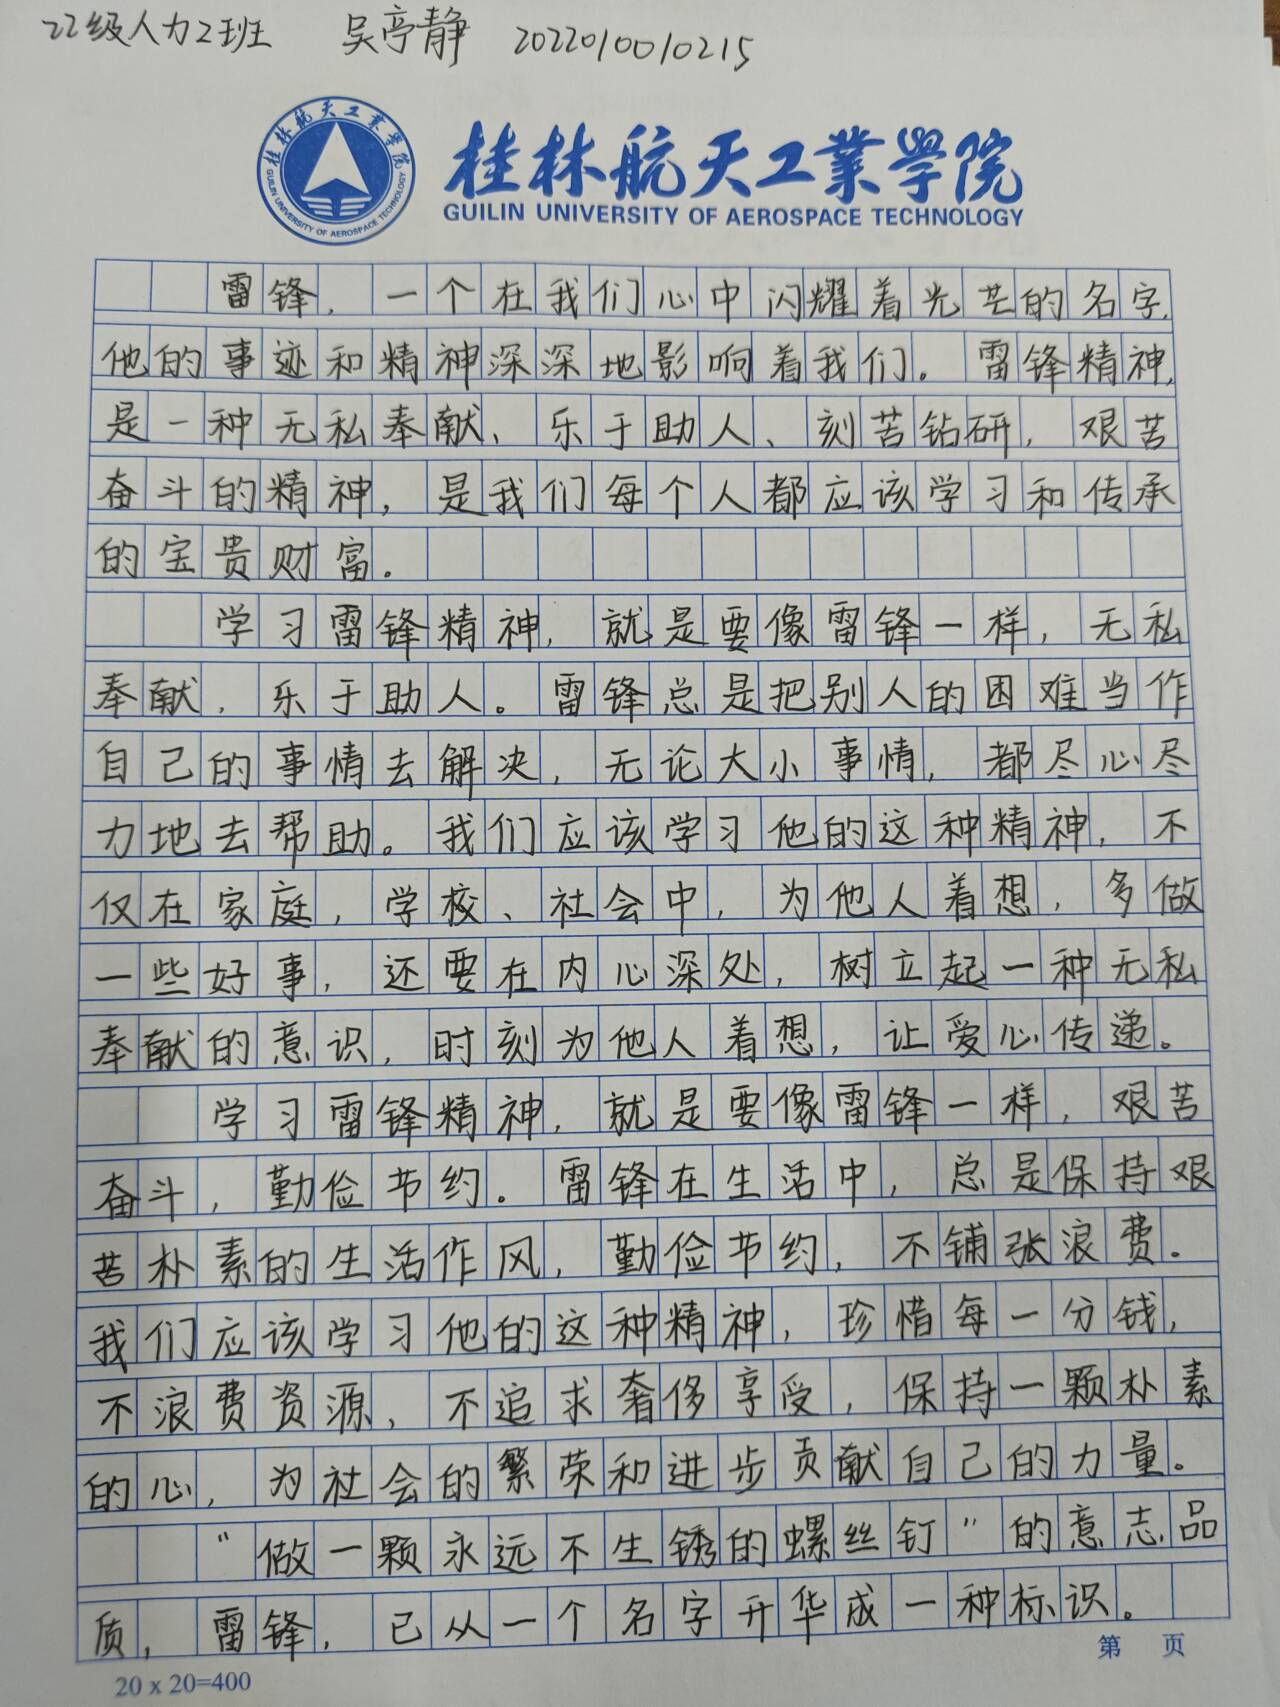 22级人力2班 吴亭静 2022010010215
桂林航天工業學院
GUILIN UNIVERSITY OF AEROSPACE TECHNOLOGY
桂林航天工業學院
GUILIN UNIVERSITY OF AEROSPACE TECHNOLOGY
雷锋，一个在我们心中闪耀着光芒的名字，
他的事迹和精神深深地影响着我们。雷锋精神，
是一种无私奉献、乐于助人、刻苦钻研，艰苦
奋斗的精神，是我们每个人都应该学习和传承
的宝贵财富。
学习雷锋精神，就是要像雷锋一样，无私
奉献，乐于助人。雷锋总是把别人的困难当作
自己的事情去解决，无论大小事情，都尽心尽
力地去帮助。我们应该学习他的这种精神，不
仅在家庭，学校、社会中，为他人着想，多做
一些好事，还要在内心深处，树立起一种无私
奉献的意识，时刻为他人着想，让爱心传递。
学习雷锋精神，就是要像雷锋一样，艰苦
奋斗，勤俭节约。雷锋在生活中，总是保持艰
苦朴素的生活作风，勤俭节约，不铺张浪费。
我们应该学习他的这种精神，珍惜每一分钱，
不浪费资源，不追求奢侈享受，保持一颗朴素
的心，为社会的繁荣和进步贡献自己的力量。
“做一颗永远不生锈的螺丝钉”的意志品
质，雷锋，已从一个名字升华成一种标识。
第 页
20 x 20=400